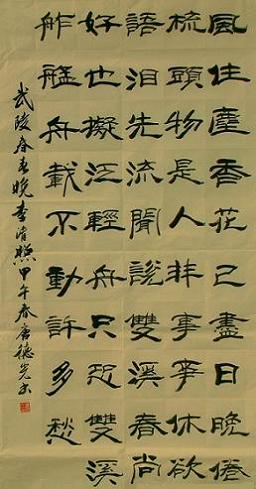 風住塵香花已盡日晚倦
梳頭物是人非事事休欲
語泪先流聞說雙溪春尚
好也擬泛輕舟只恐雙溪
舴艋舟載不動許多愁
武陵春春晚李清照甲午春唐德光书